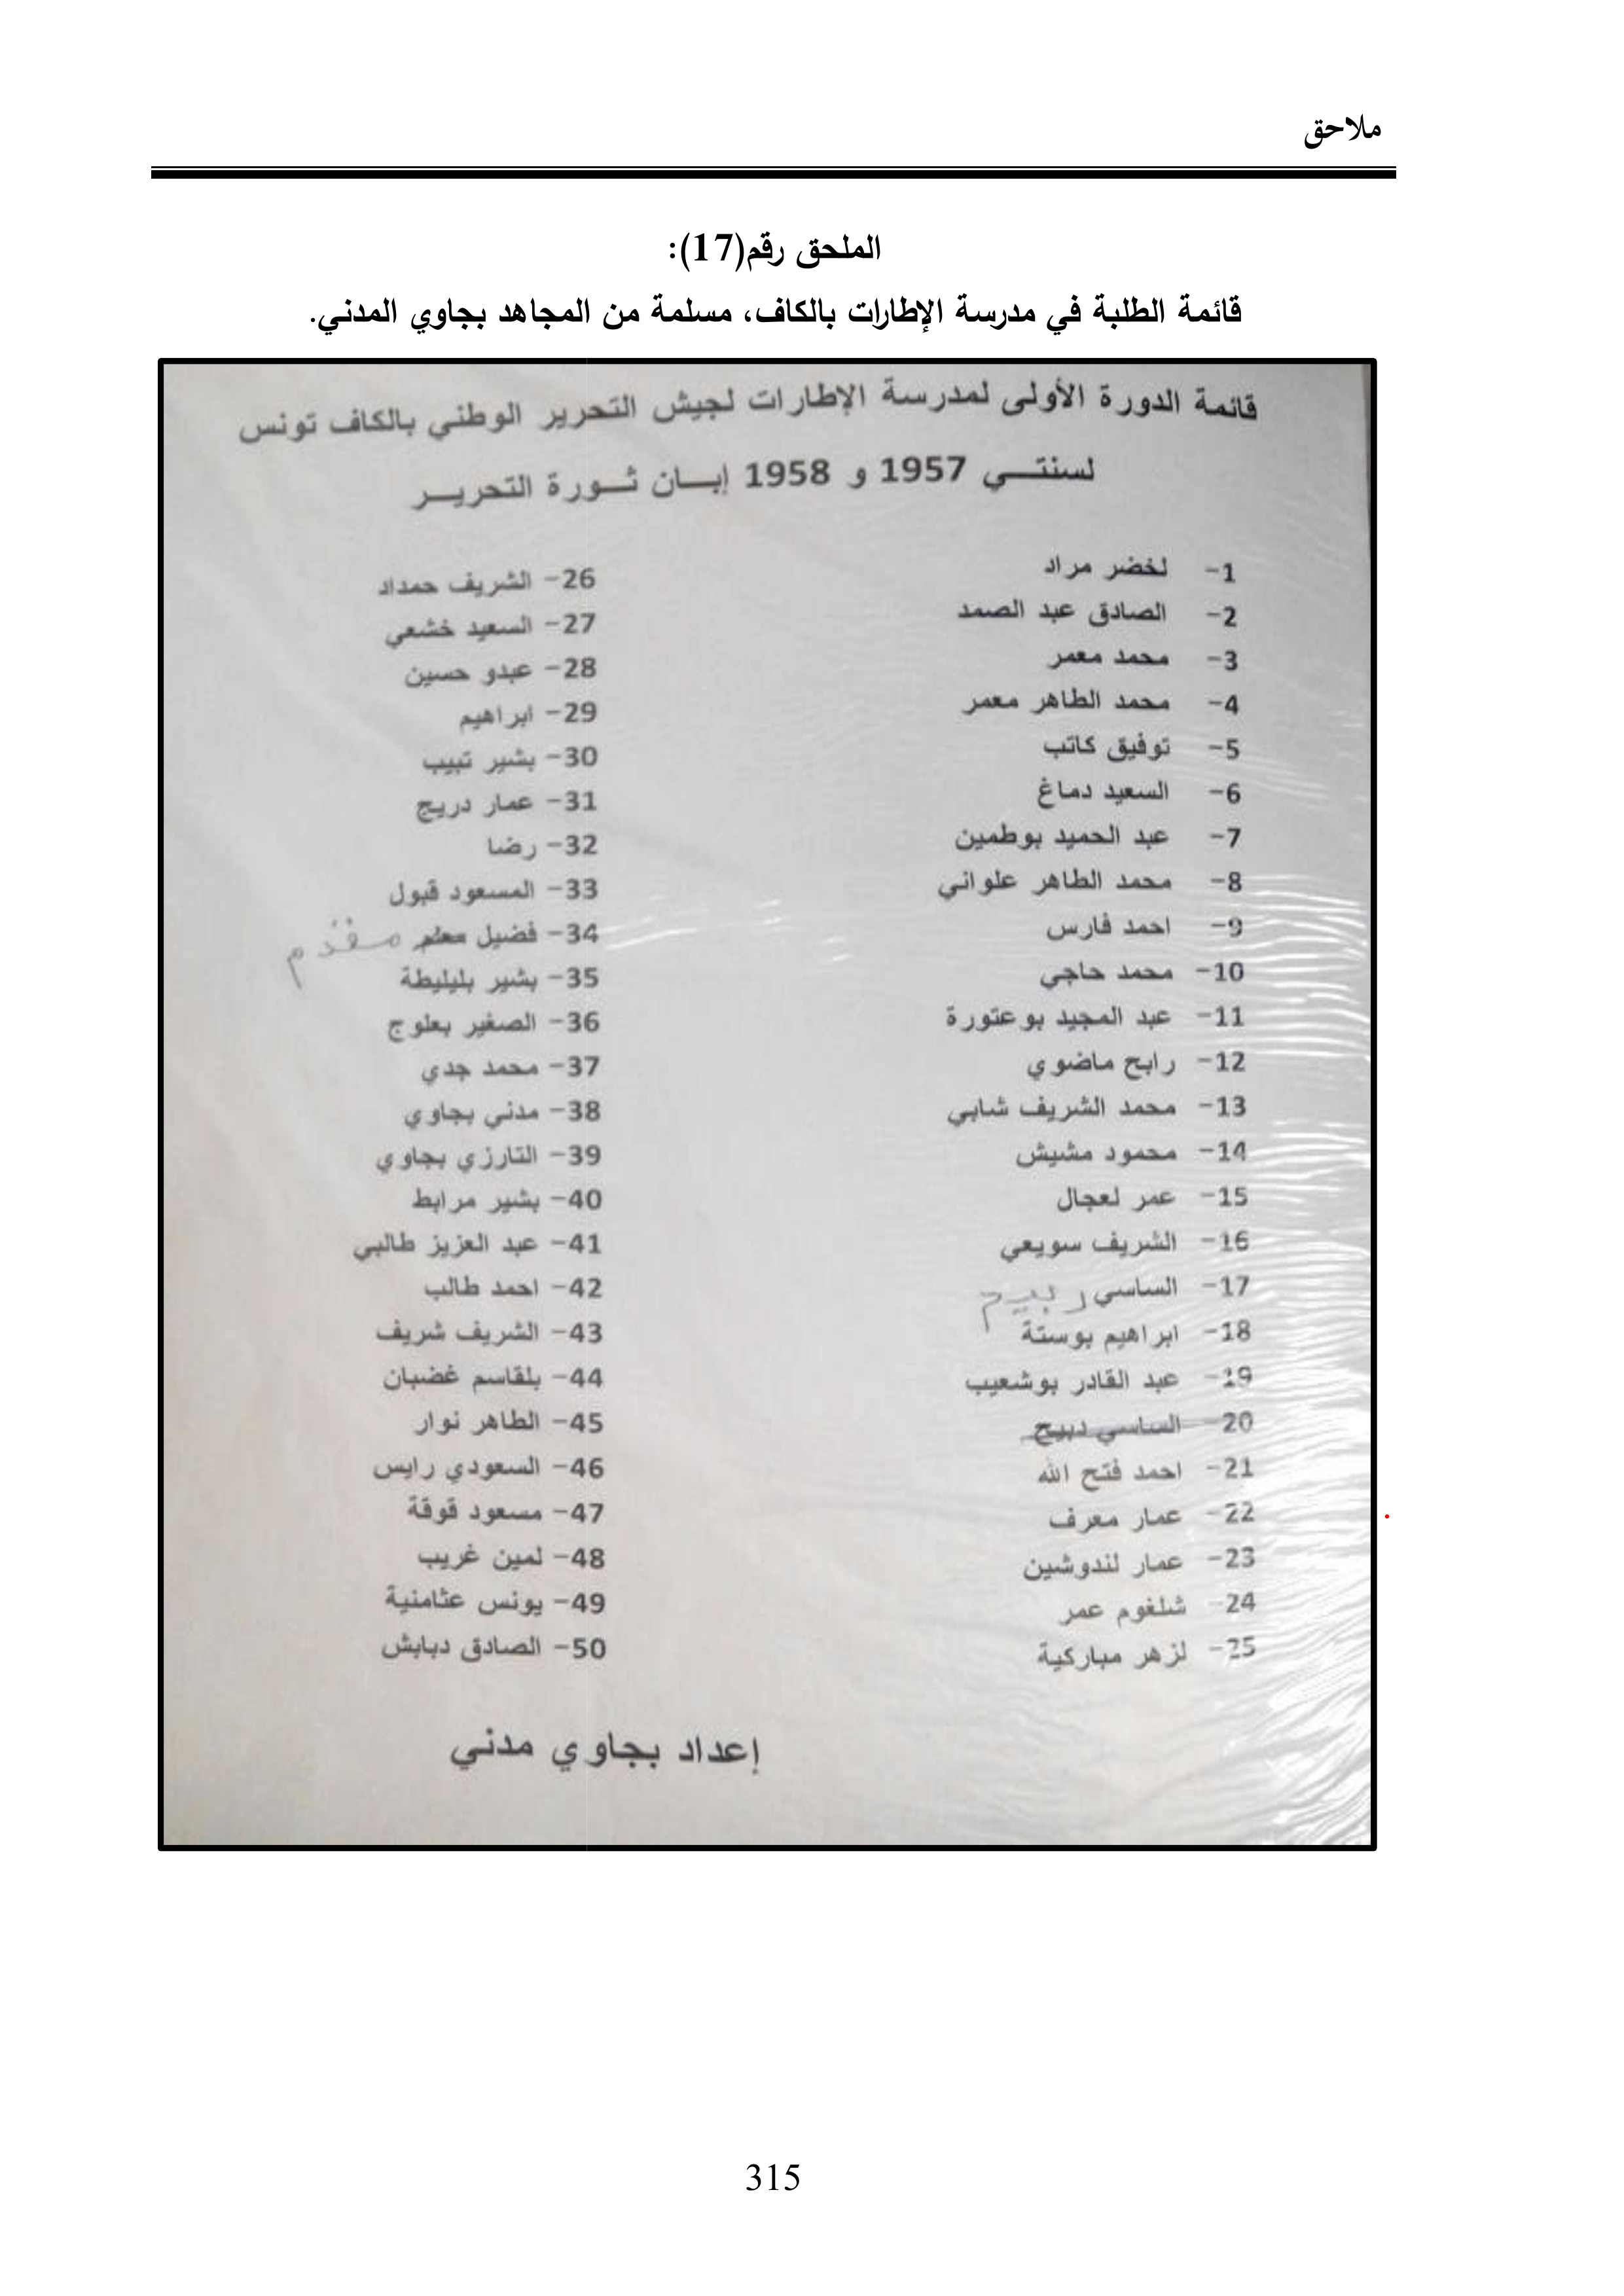 ملاحق
الملحق رقم(17):
قائمة الطلبة في مدرسة الإطارات بالكاف، مسلمة من المجاهد بجاوي المدني.
قائمة الدورة الأولى لمدرسة الإطارات لجيش التحرير الوطني بالكاف تونس
لسنتـــي 1957 و 1958 إبـــان ثـــورة التحريـــر
1- لخضر مراد
2- الصادق عبد الصمد
3- محمد معمر
4- محمد الطاهر معمر
5- توفيق كاتب
6- السعيد دماغ
7- عبد الحميد بوطمين
8- محمد الطاهر علواني
9- احمد فارس
10- محمد حاجي
11- عبد المجيد بوعتورة
12- رابح ماضوي
13- محمد الشريف شابي
14- محمود مشيش
15- عمر لعجال
16- الشريف سويعي
17- الساسي
18- ابراهيم بوستة
19- عبد القادر بوشعيب
20- الساسي دبيح
21- احمد فتح الله
22- عمار معرف
23- عمار لندوشين
24- شلغوم عمر
25- لزهر مباركية
26- الشريف حمداد
27- السعيد خشعي
28- عبدو حسين
29- ابراهيم
30- بشير تبيب
31- عمار دريج
32- رضا
33- المسعود قبول
34- فضيل معلم مقدم
35- بشير بليليطة
36- الصغير بعلوج
37- محمد جدي
38- مدني بجاوي
39- التارزي بجاوي
40- بشير مرابط
41- عبد العزيز طالبي
42- احمد طالب
43- الشريف شريف
44- بلقاسم غضبان
45- الطاهر نوار
46- السعودي رايس
47- مسعود قوقة
48- لمين غريب
49- يونس عثامنية
50- الصادق دبابش
إعداد بجاوي مدني
315